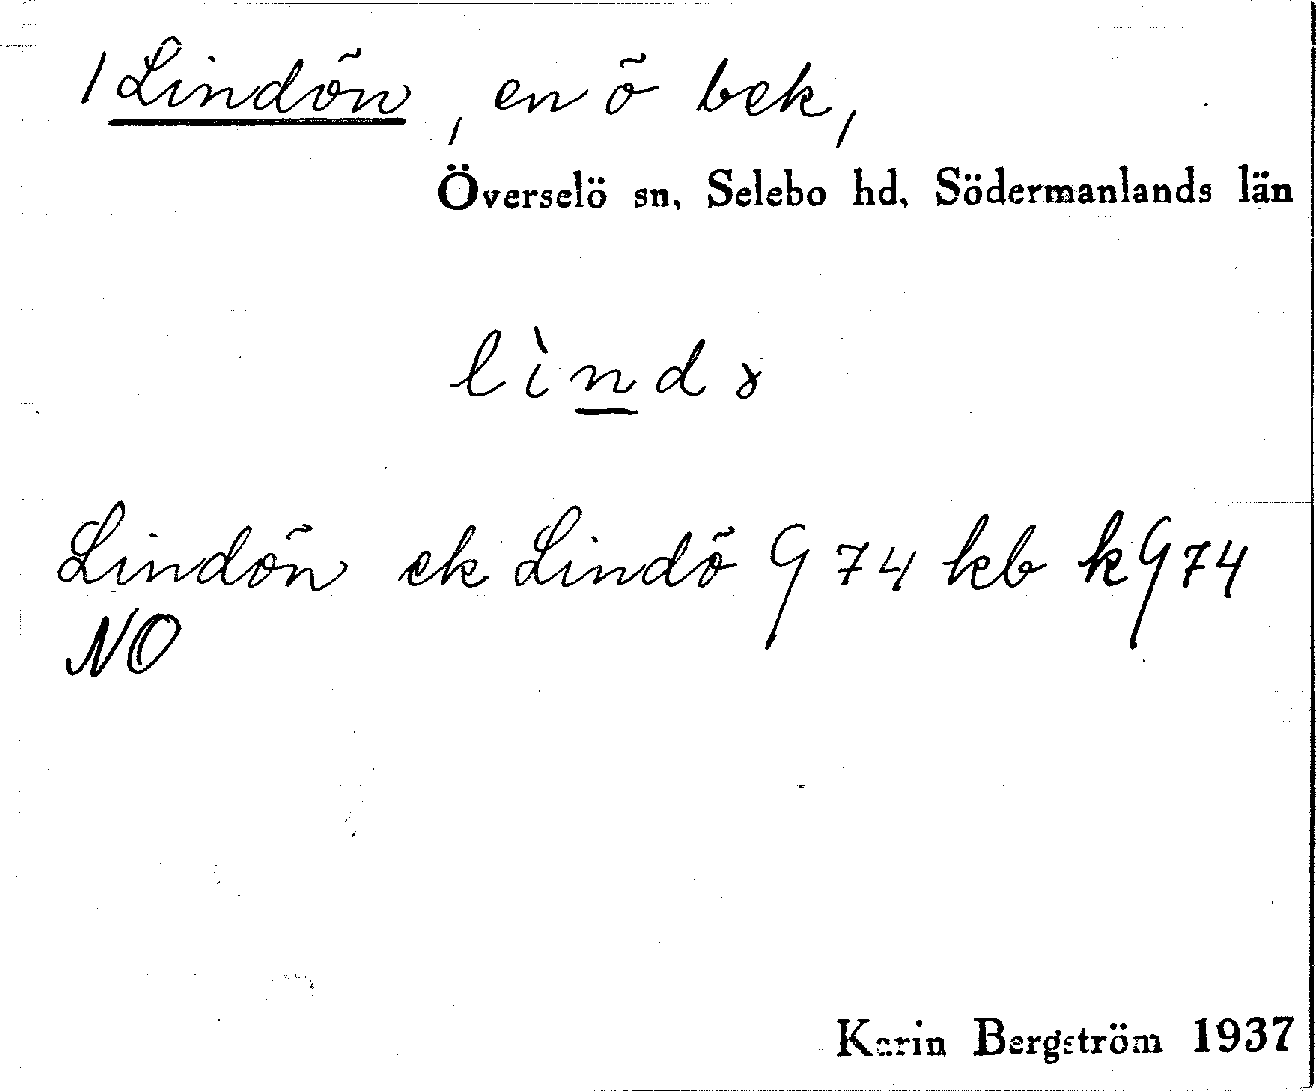 1 Lindön, en ö bek,
Överselö sn, Selebo hd, Södermanlands län
lìndɤ
Lindön ek Lindö G 74 kb k G 74
NO
Karin Bergström 1937